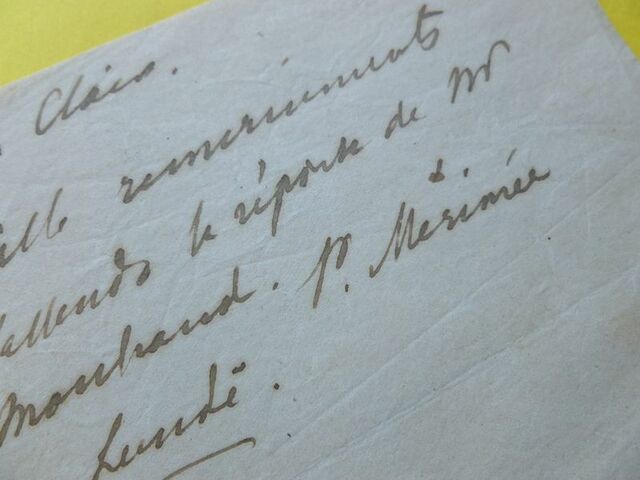 Clais.
ille remerciements
attends la réponse de Mr
Monthaud. Pr. Mérimée
Lundi.